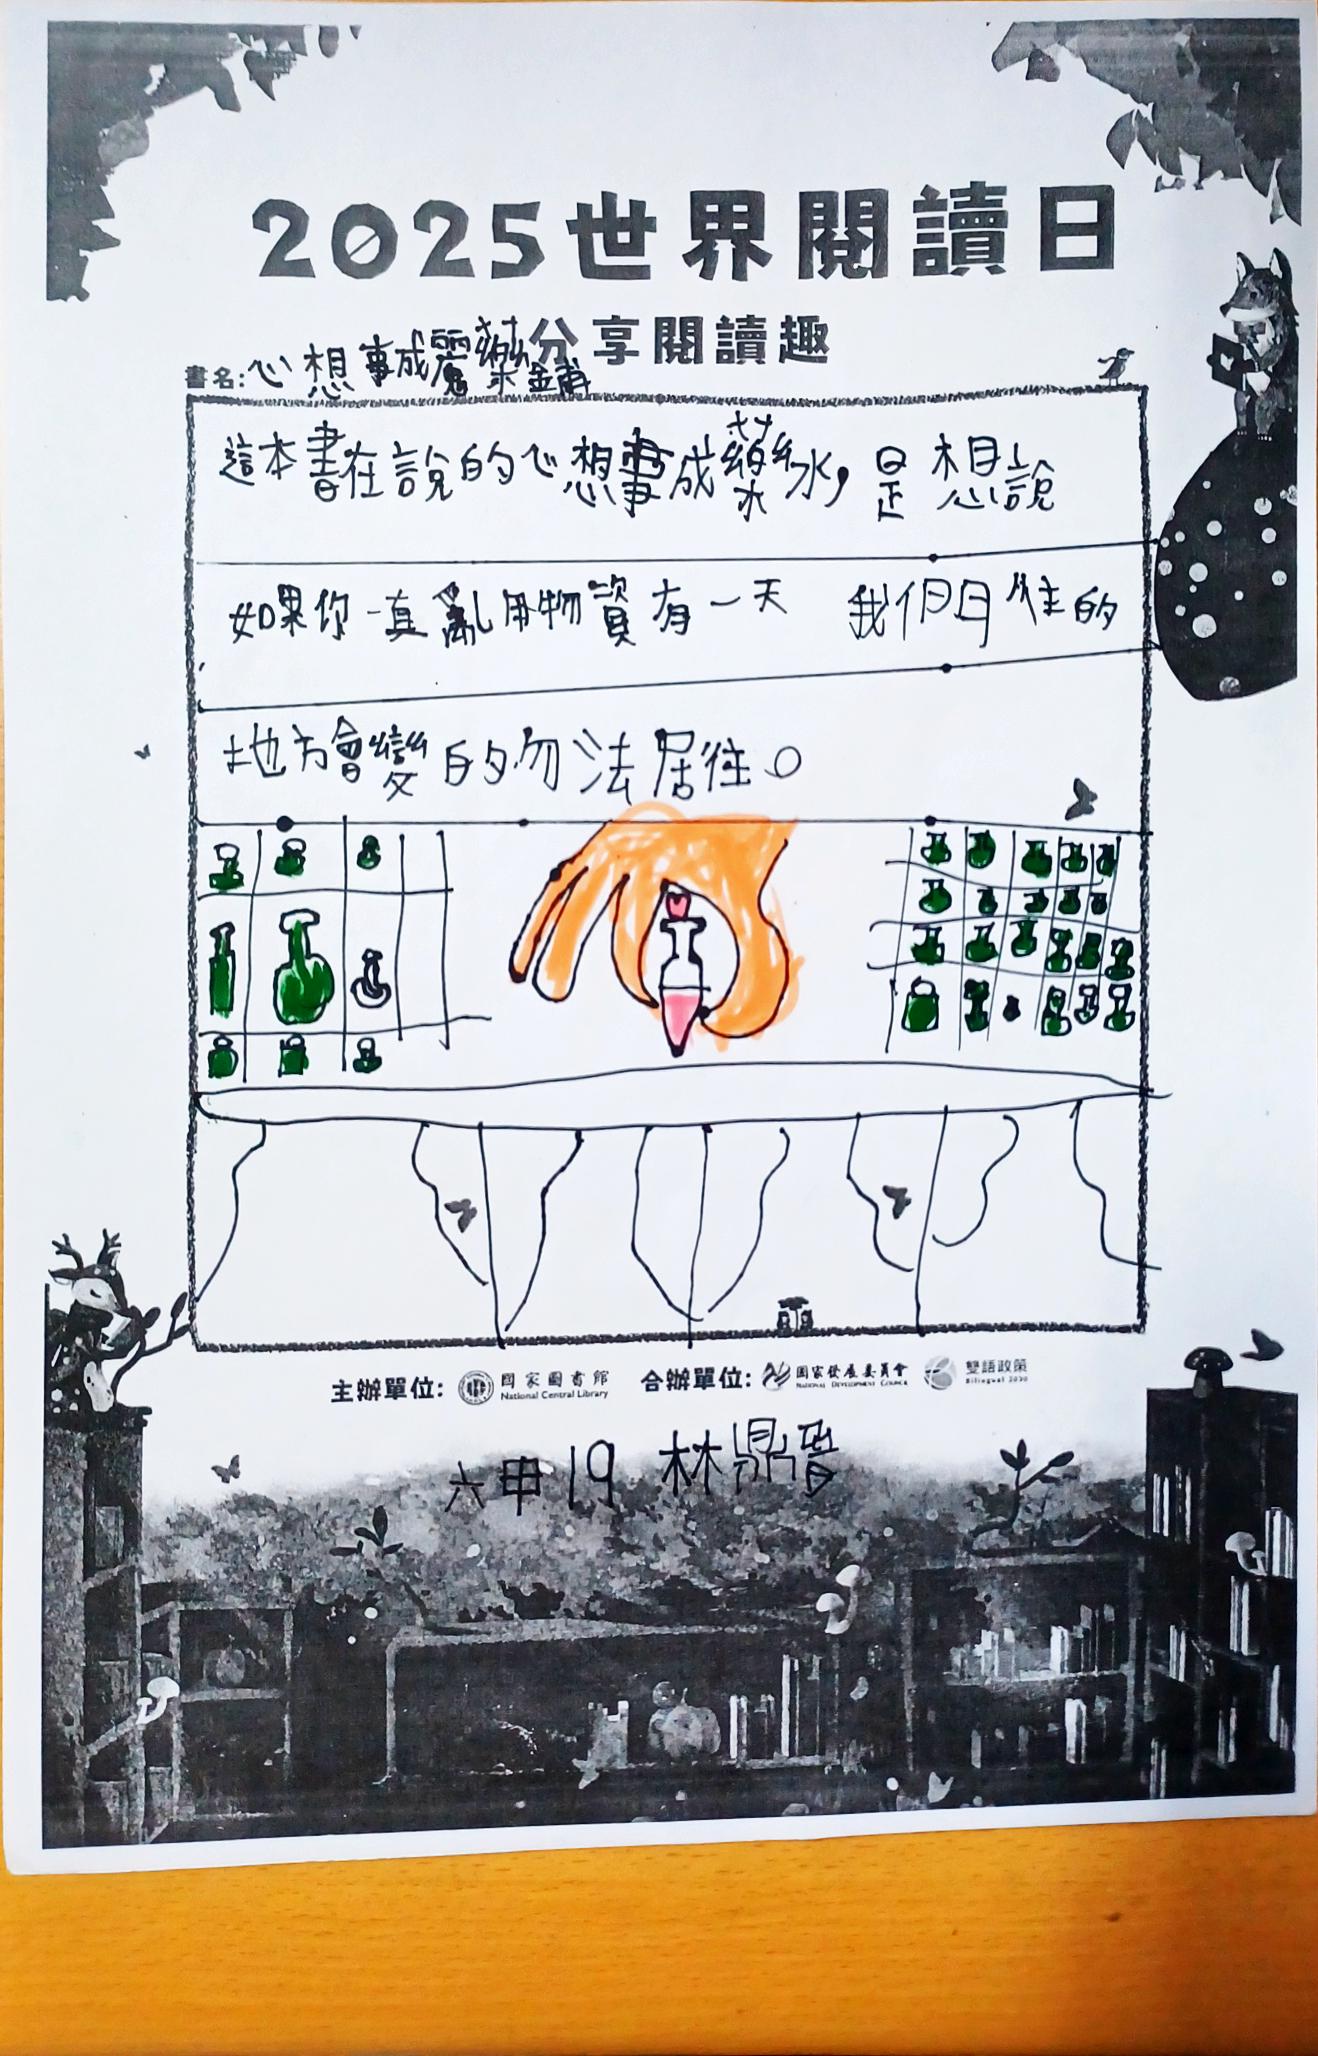 2025世界閱讀日
分享閱讀趣
書名:心想事成魔藥鋪
這本書在說的心想事成藥水,是想說
如果你一直亂用物質有一天 我們日後住的
地方會變的勿法居往。
主辦單位: 國家圖書館 National Central Library 合辦單位: 國家發展委員會 National Development Council 雙語政策 Bilingual 2030
六甲 19 林鼎晉